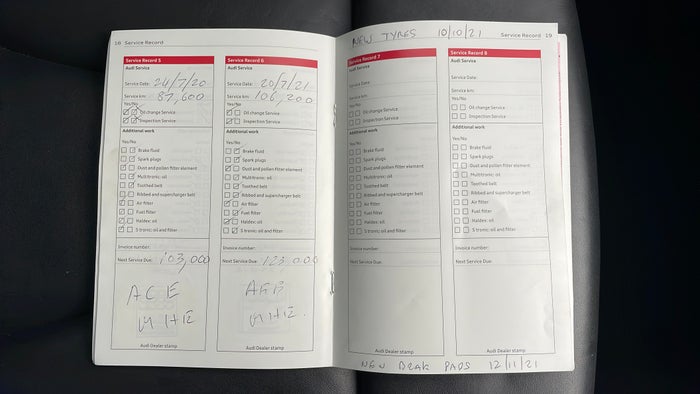 18 Service Record
Service Record 5
Audi Service
Service Date: 24/7/20
Service km: 87,600
Yes/No
Oil change Service
Inspection Service
Additional work
Yes/No
Brake fluid
Spark plugs
Dust and pollen filter element
Multitronic: oil
Toothed belt
Ribbed and supercharger belt
Air filter
Fuel filter
Haldex: oil
S tronic: oil and filter
Invoice number:
Next Service Due: 103,000
ACE
MHE
Audi Dealer stamp
Service Record 6
Audi Service
Service Date: 20/7/21
Service km: 106,200
Yes/No
Oil change Service
Inspection Service
Additional work
Yes/No
Brake fluid
Spark plugs
Dust and pollen filter element
Multitronic: oil
Toothed belt
Ribbed and supercharger belt
Air filter
Fuel filter
Haldex: oil
S tronic: oil and filter
Invoice number:
Next Service Due: 123 000
MHE.
Audi Dealer stamp
NEW TYRES 10/10/21
Service Record 19
Service Record 7
Audi Service
Service Date:
Service km:
Yes/No
Oil change Service
Inspection Service
Additional work
Yes/No
Brake fluid
Spark plugs
Dust and pollen filter element
Multitronic: oil
Toothed belt
Ribbed and supercharger belt
Air filter
Fuel filter
Haldex: oil
S tronic: oil and filter
Invoice number:
Next Service Due:
Audi Dealer stamp
Service Record 8
Audi Service
Service Date:
Service km:
Yes/No
Oil change Service
Inspection Service
Additional work
Yes/No
Brake fluid
Spark plugs
Dust and pollen filter element
Multitronic: oil
Toothed belt
Ribbed and supercharger belt
Air filter
Fuel filter
Haldex: oil
S tronic: oil and filter
Invoice number:
Next Service Due:
Audi Dealer stamp
NEW BRAK PADS 12/11/21